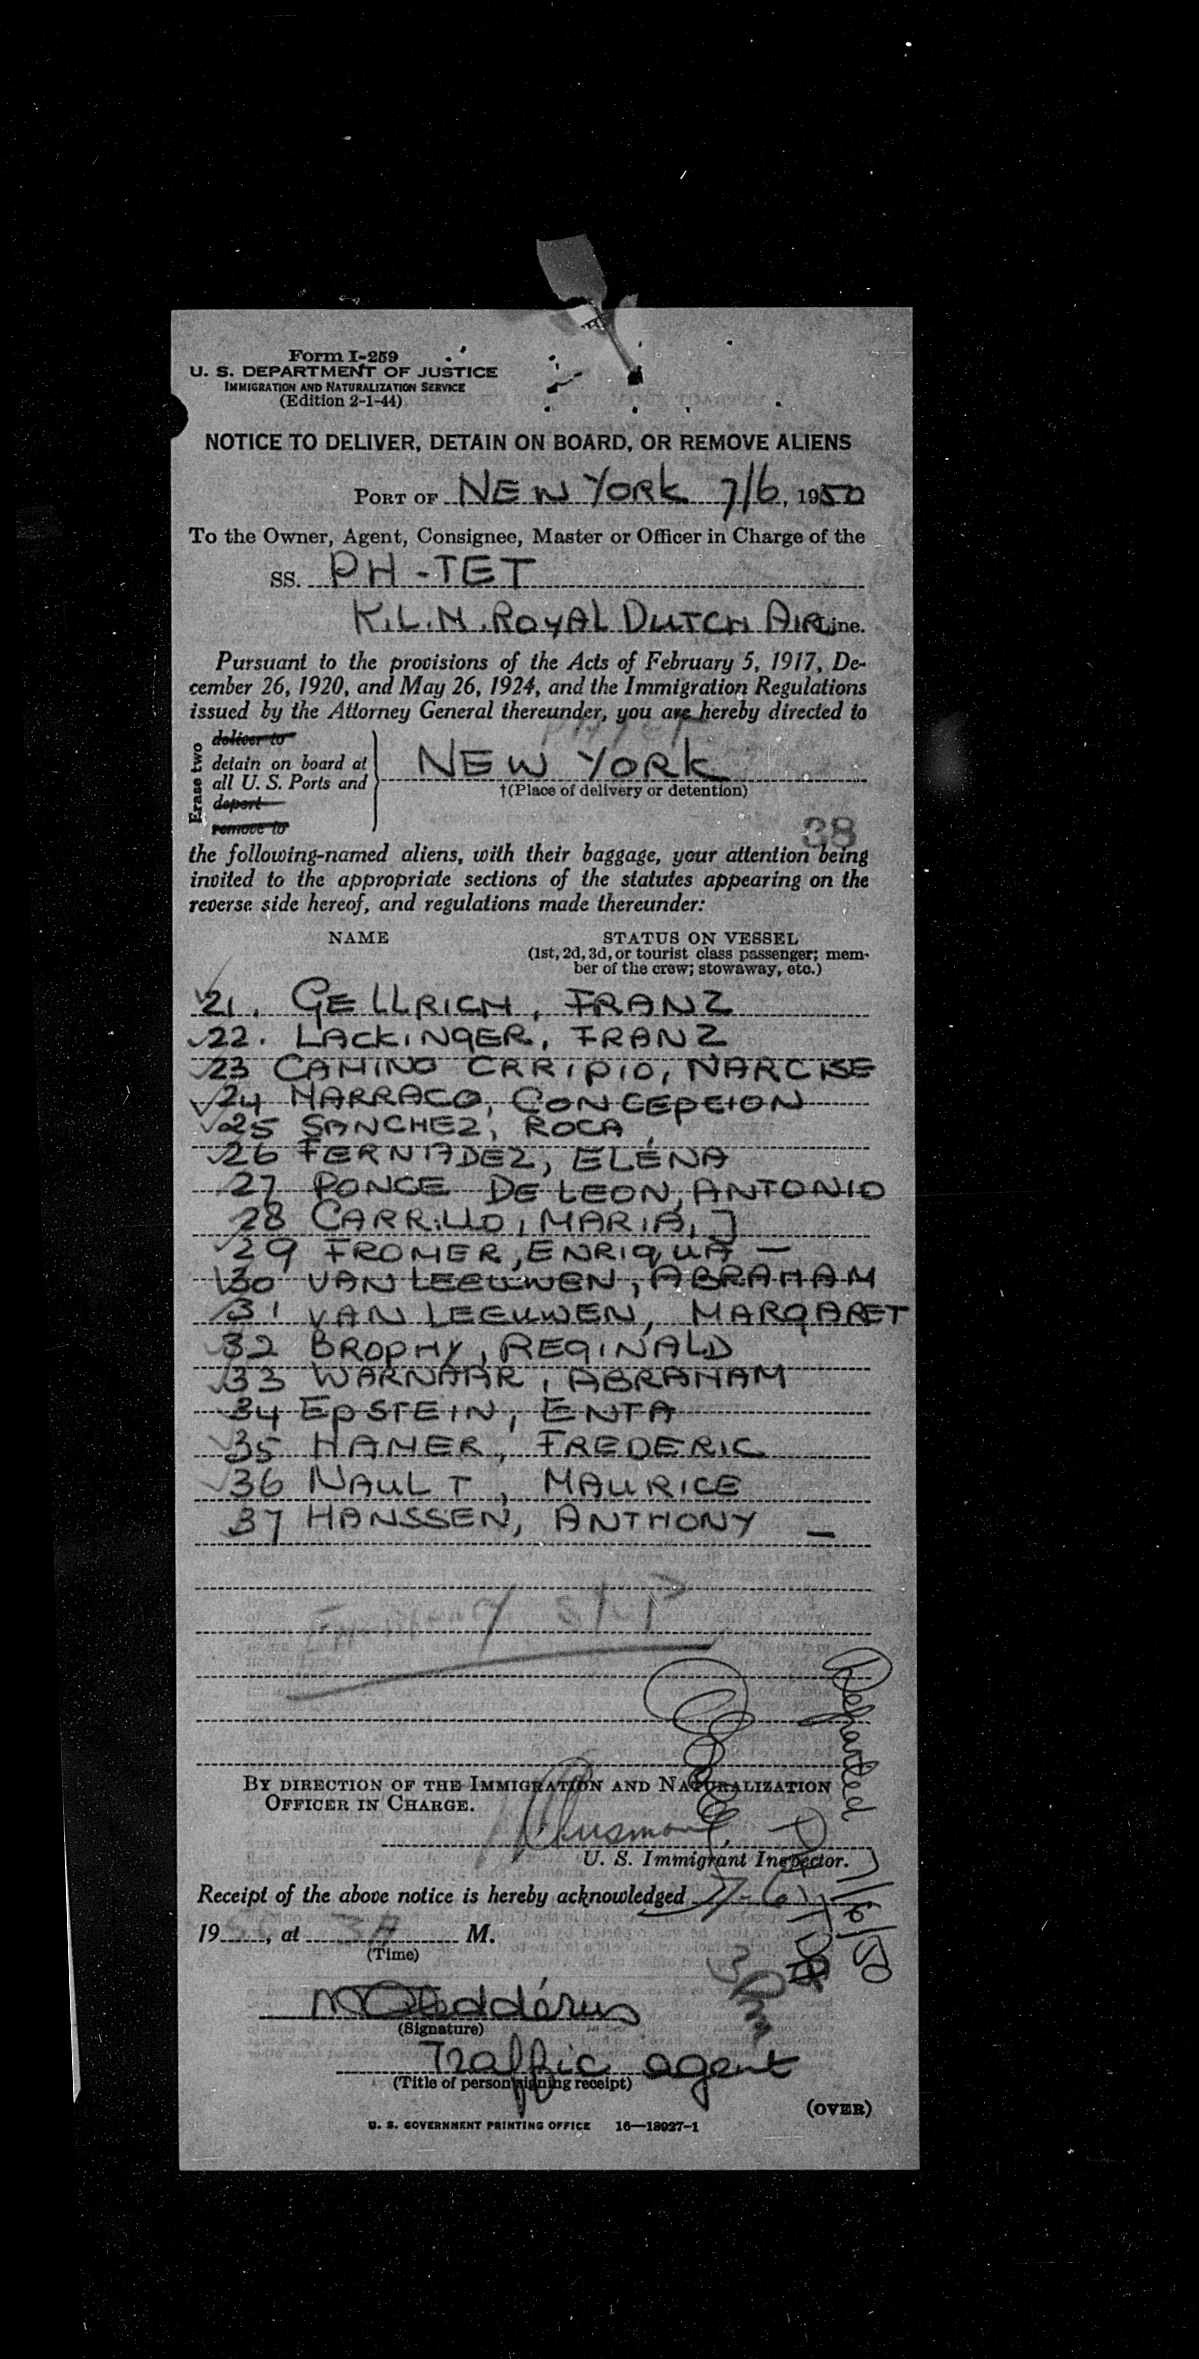 Form I-259
U. S. DEPARTMENT OF JUSTICE
IMMIGRATION AND NATURALIZATION SERVICE
(Edition 2-1-44)
NOTICE TO DELIVER, DETAIN ON BOARD, OR REMOVE ALIENS
PORT OF NEW YORK 7/6, 1950
To the Owner, Agent, Consignee, Master or Officer in Charge of the
SS. PH-TET
K.L.M. ROYAL DUTCH AIR Line.
Pursuant to the provisions of the Acts of February 5, 1917, De-
cember 26, 1920, and May 26, 1924, and the Immigration Regulations
issued by the Attorney General thereunder, you are hereby directed to
Erase two
deliver to
detain on board at
all U. S. Ports and
deport
remove to
NEW YORK
†(Place of delivery or detention)
38
the following-named aliens, with their baggage, your attention being
invited to the appropriate sections of the statutes appearing on the
reverse side hereof, and regulations made thereunder:
NAME STATUS ON VESSEL
(1st, 2d, 3d, or tourist class passenger; mem-
ber of the crew; stowaway, etc.)
21. GELLRICH, FRANZ
22. LACKINGER, FRANZ
23 CAMINO CRRIPIO, NARCISE
24 MARRACO, CONCEPCION
25 SANCHEZ, ROCA,
26 FERNADEZ, ELENA
27 PONCE DE LEON, ANTONIO
28 CARRILLO, MARIA, J
29 FROMER, ENRIQUA —
30 VAN LEEUWEN, ABRAHAM
31 VAN LEEUWEN, MARGARET
32 BROPHY, REGINALD
33 WARNAAR, ABRAHAM
34 EPSTEIN, ENTA
35 HAMER, FREDERIC
36 NAULT, MAURICE
37 HANSSEN, ANTHONY —
BY DIRECTION OF THE IMMIGRATION AND NATURALIZATION
OFFICER IN CHARGE.
U. S. Immigrant Inspector.
Departed 7/6/50
Receipt of the above notice is hereby acknowledged 7-6,
1950, at 3A M.
(Time)
(Signature)
Traffic agent
(Title of person signing receipt)
(OVER)
U. S. GOVERNMENT PRINTING OFFICE 16—18927-1